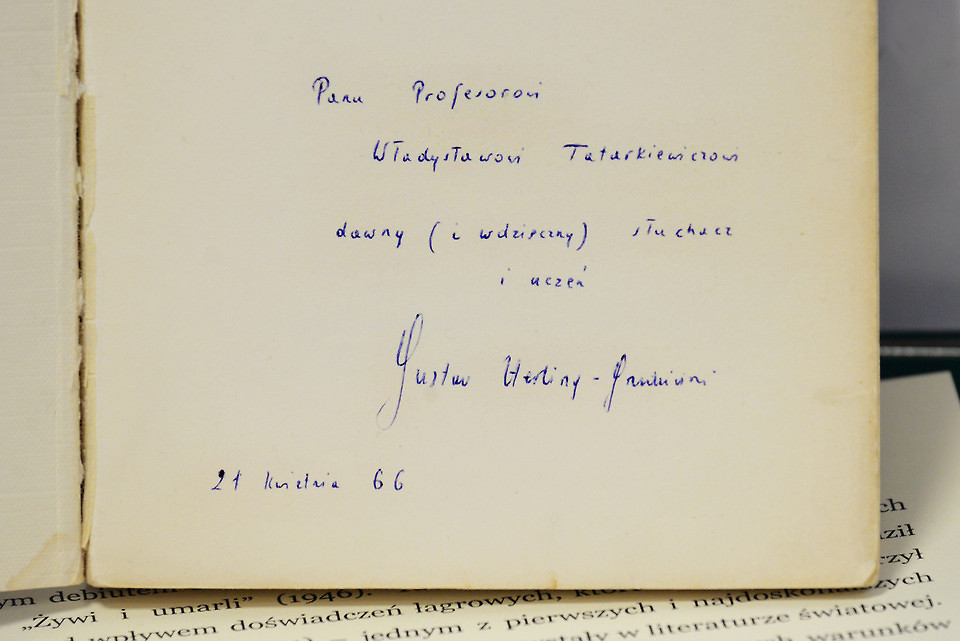 Panu Profesorowi
Władysławowi Tatarkiewiczowi
dawny (i wdzięczny) słuchacz
i uczeń
Gustaw Herling-Grudziński
21 kwietnia 66
ch
ził
ym debiutem
rzył
„Żywi i umarli” (1946).
wpływem doświadczeń łagrowych, któ
ych
– jednym z pierwszych i najdoskona
stały w literaturze światowej.
warunków